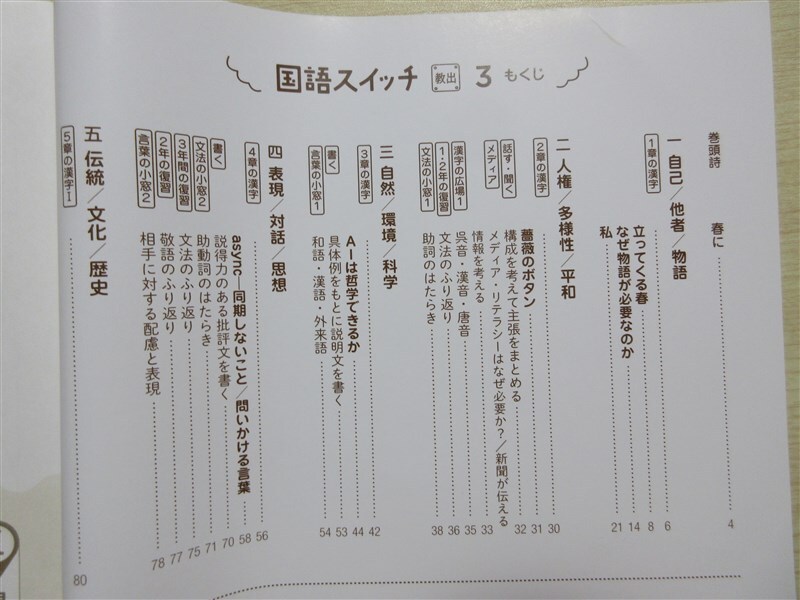 国語スイッチ 教出 3 もくじ
巻頭詩 春に 4
一 自己/他者/物語
1章の漢字 6
立ってくる春 8
なぜ物語が必要なのか 14
私 21
二 人権/多様性/平和
2章の漢字 30
薔薇のボタン 31
話す・聞く 構成を考えて主張をまとめる 32
メディア メディア・リテラシーはなぜ必要か?/新聞が伝える
情報を考える 33
漢字の広場1 呉音・漢音・唐音 35
1・2年の復習 文法のふり返り 36
文法の小窓1 助詞のはたらき 38
三 自然/環境/科学
3章の漢字 42
AIは哲学できるか 44
書く 具体例をもとに説明文を書く 53
言葉の小窓1 和語・漢語・外来語 54
四 表現/対話/思想
4章の漢字 56
async―同期しないこと/問いかける言葉 58
書く 説得力のある批評文を書く 70
文法の小窓2 助動詞のはたらき 71
3年間の復習 文法のふり返り 75
2年の復習 敬語のふり返り 77
言葉の小窓2 相手に対する配慮と表現 78
五 伝統/文化/歴史
5章の漢字Ⅰ 80